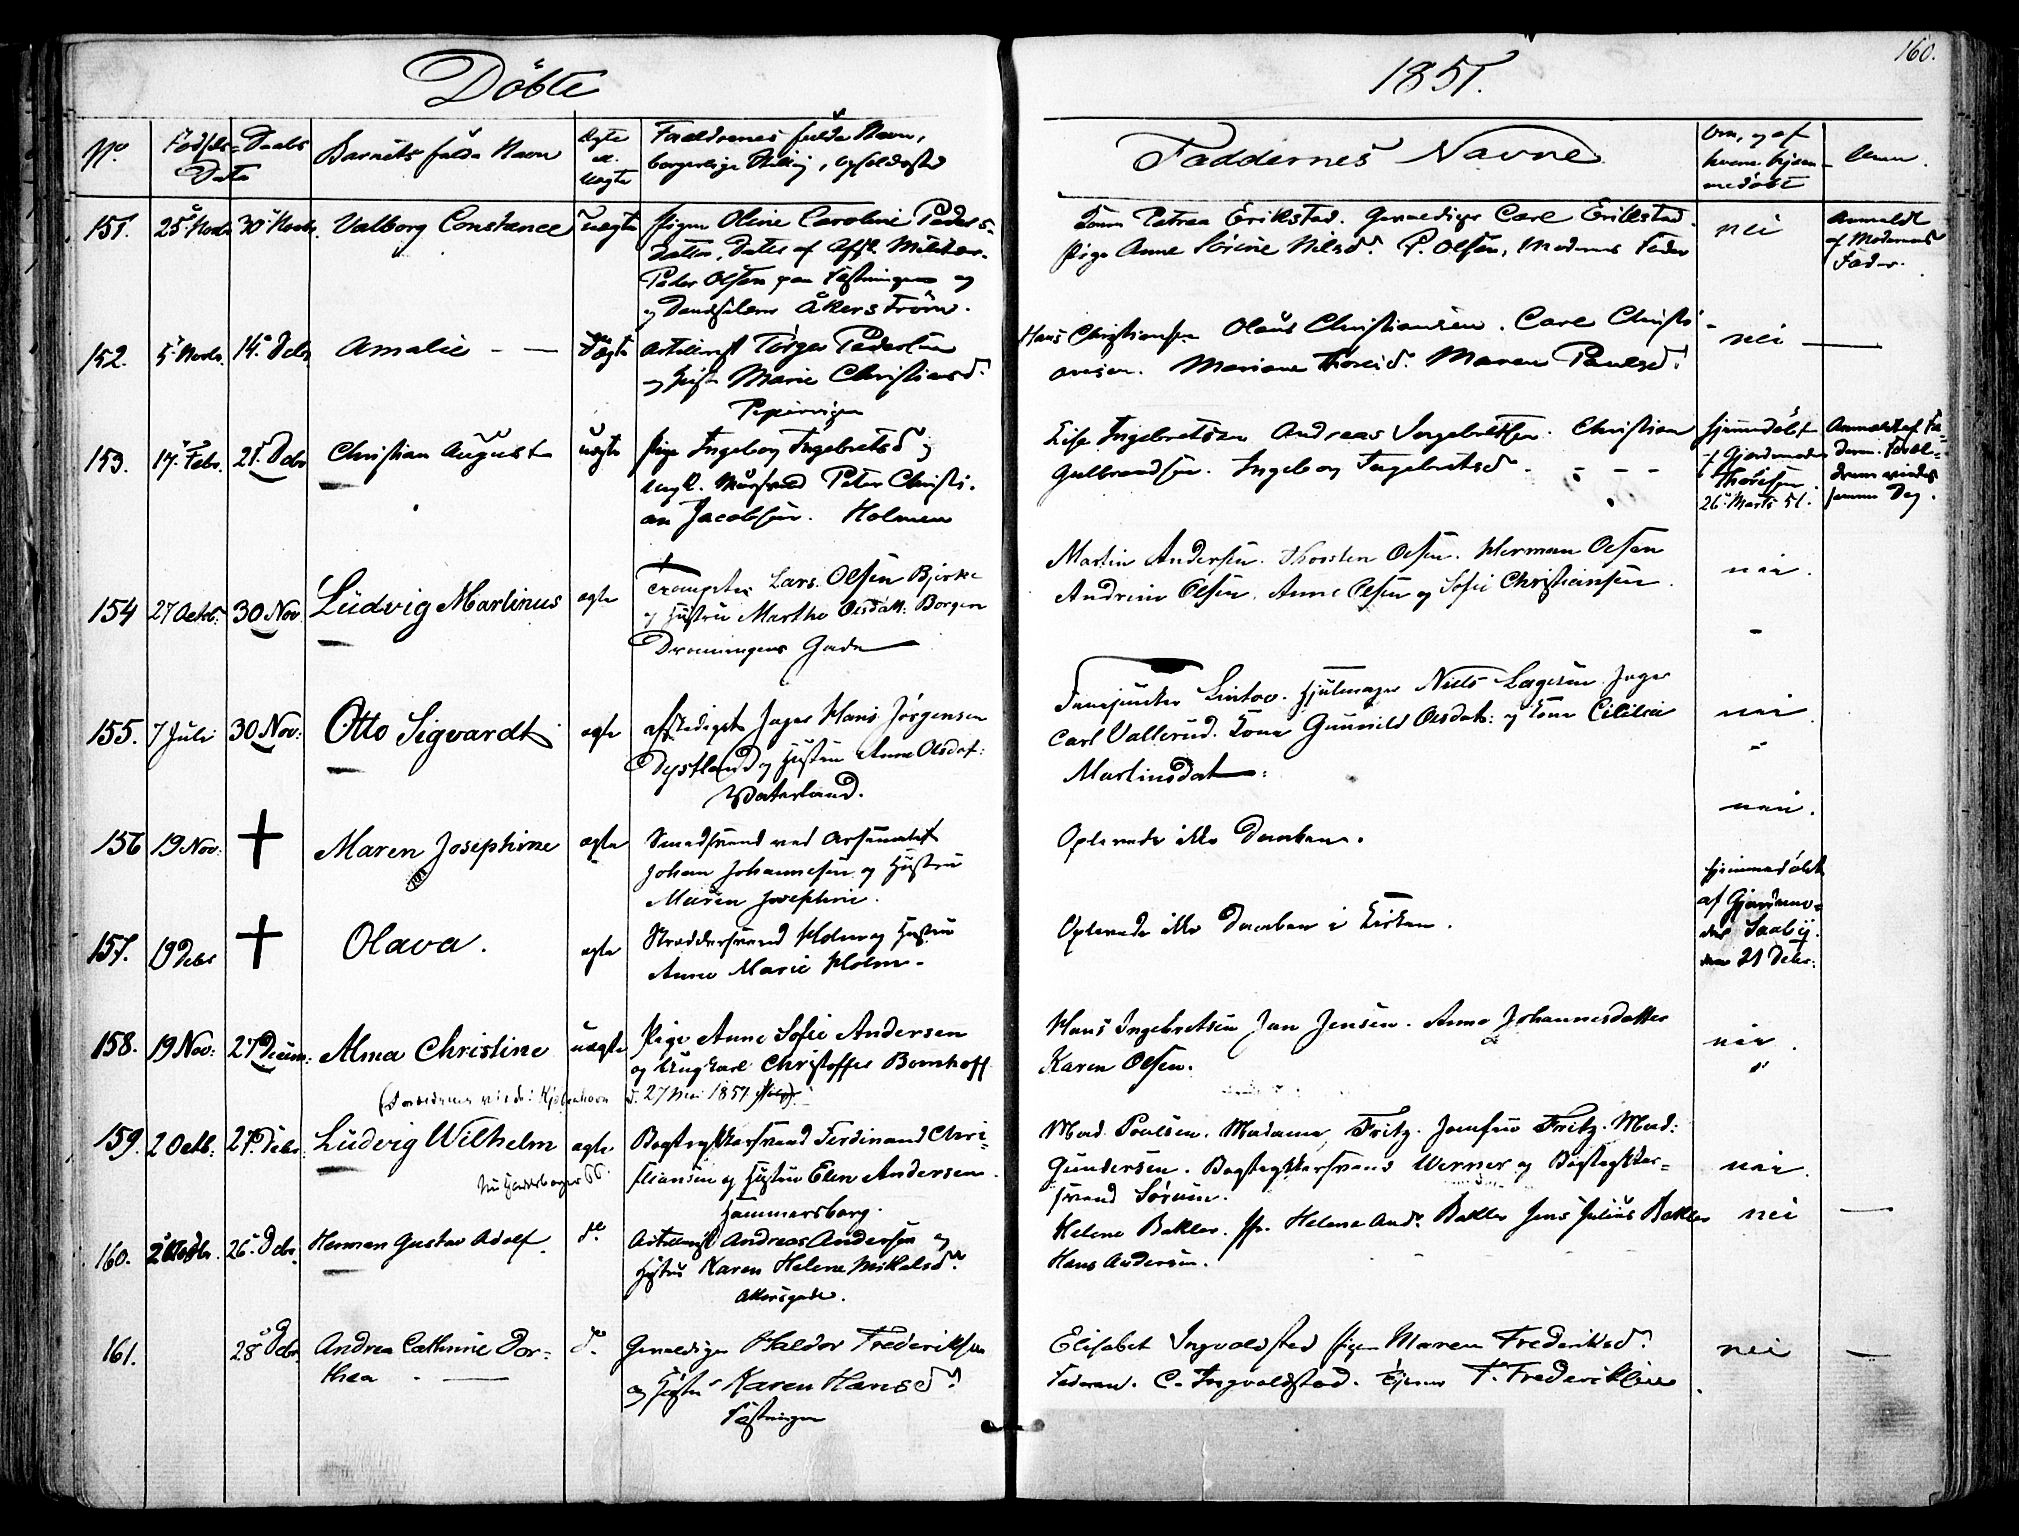 160.
Döbte 1851.
No. Födsels- Daabs Data Barnets fulde Navn Ægte el. Uægte Forældrenes fulde Navn, borgerlige Stilling, Opholdssted
Faddernes Navne Om, og af hvem hjemmedöbt Anm.
151. 25 Novbr. 30 Novbr. Valborg Constance Uægte Pigen Oline Caroline Peders-
datter, Datter af Afsk. Militær
Peder Olsen paa Fæstningen og
og Dandselærer Åkerström.
Kone Petrea Erikstad. Gevaldiger Carl Erikstad.
Pige Anne Sörine Nilsd. P. Olsen, Moderens Fader
nei
Anmeldt
af Moderens
Fader.
152. 5 Novbr. 14 Debr. Amalie - — Ægte Artillerist Törger Pedersen
og Hust. Marie Christiansd.
Pipervigen
Hans Christiansen Olaus Christiansen. Carl Christi-
ansen. Mariane Thored. Maren Paulsd.
nei —
153. 17 Febr. 21 Debr Christian August uægte Pige Ingeborg Ingebretsd og
Ungk. Murersvend Peter Christi-
an Jacobsen. Holmen
Lise Ingebretsen Andreas Ingebretsen. Christian
Gulbrandsen. Ingeborg Ingebretsd. - - -
hjemmedöbt
af Gjordemoder
Thoresen
26 Marts 51.
Anmeldt af Fa-
deren. Foræl-
drene viedes
samme Dag.
154 27 Octb. 30 Nov Ludvig Martinus ægte Trompeter Lars Olsen Bjerke
og Hustru Marthe Olsdatt: Borgen
Dronningens Gade
Martin Andersen. Thorsten Olsen. Herman Olsen
Andrine Olsen. Anne Olsen og Sofie Christiansen.
nei.
155. 7 Juli 30 Nov: Otto Sigvardt ægte afskediget Jæger Hans Jörgensen
Dystland og Hustru Anne Olsdat:
Vaterland.
Fanejunker Lintoe. Hjulmager Niels Lagesen Jæger
Carl Vallerud. Kone Gunnild Olsdat: og Kone Cicilia
Martinsdat:
nei.
156 19 Nov: + Maren Josephine ægte Smedsvend ved Arsenalet
Johan Johannesen og Hustru
Maren Josephine.
Oplevede ikke Daaben.
nei.
157. 19 Debr + Olava. ægte Skræddersvend Holm og Hustru
Anne Marie Holm.
Oplevede ikke Daaben i Kirken.
hjemmedöbt
af Gjordemo-
der Saaby.
den 21 Debr:
158. 19 Nov: 27 Decem: Alma Christine uægte Pige Anne Sofie Andersen
og Ungkarl Christoffer Bomhoff
(Forældrene viede i Kjöbenhavn d. 27 Mai 1857
Hans Ingebretsen Jan Jensen. Anne Johannesdatter
Karen Olsen.
nei.
159. 2 Octb: 27. Debr. Ludvig Wilhelm ægte Bogtrykkersvend Ferdinand Chri-
stiansen og Hustru Elen Andersen.
Hammersborg.
Mad. Poulsen. Madame Fritz. Jomfru Fritz. Mad:
Gundersen. Bogtrykkersvend Werner og Bogtrykker-
svend Sörum.
nei.
160. 2 Novbr. 26 Debr. Herman Gustav Adolf. do Artillerist Andreas Andersen og
Hustru Karen Helene Mikelsd.
Akersgade.
Helene Bakler. Pige Helene And. Bakler Jens Julius Bakler
Hans Andersen.
nei —
161. 28 Debr. Andrea Cathrine Dor-
thea - — do Gevaldiger Haldor Frederiksen
og Hustru Karen Hansd.
Fæstningen
Elisabet Ingvaldsted Pigen Maren Frederiksd.
Faderen. C. Ingvaldstad. Tjener F. Frederiksen
nei —